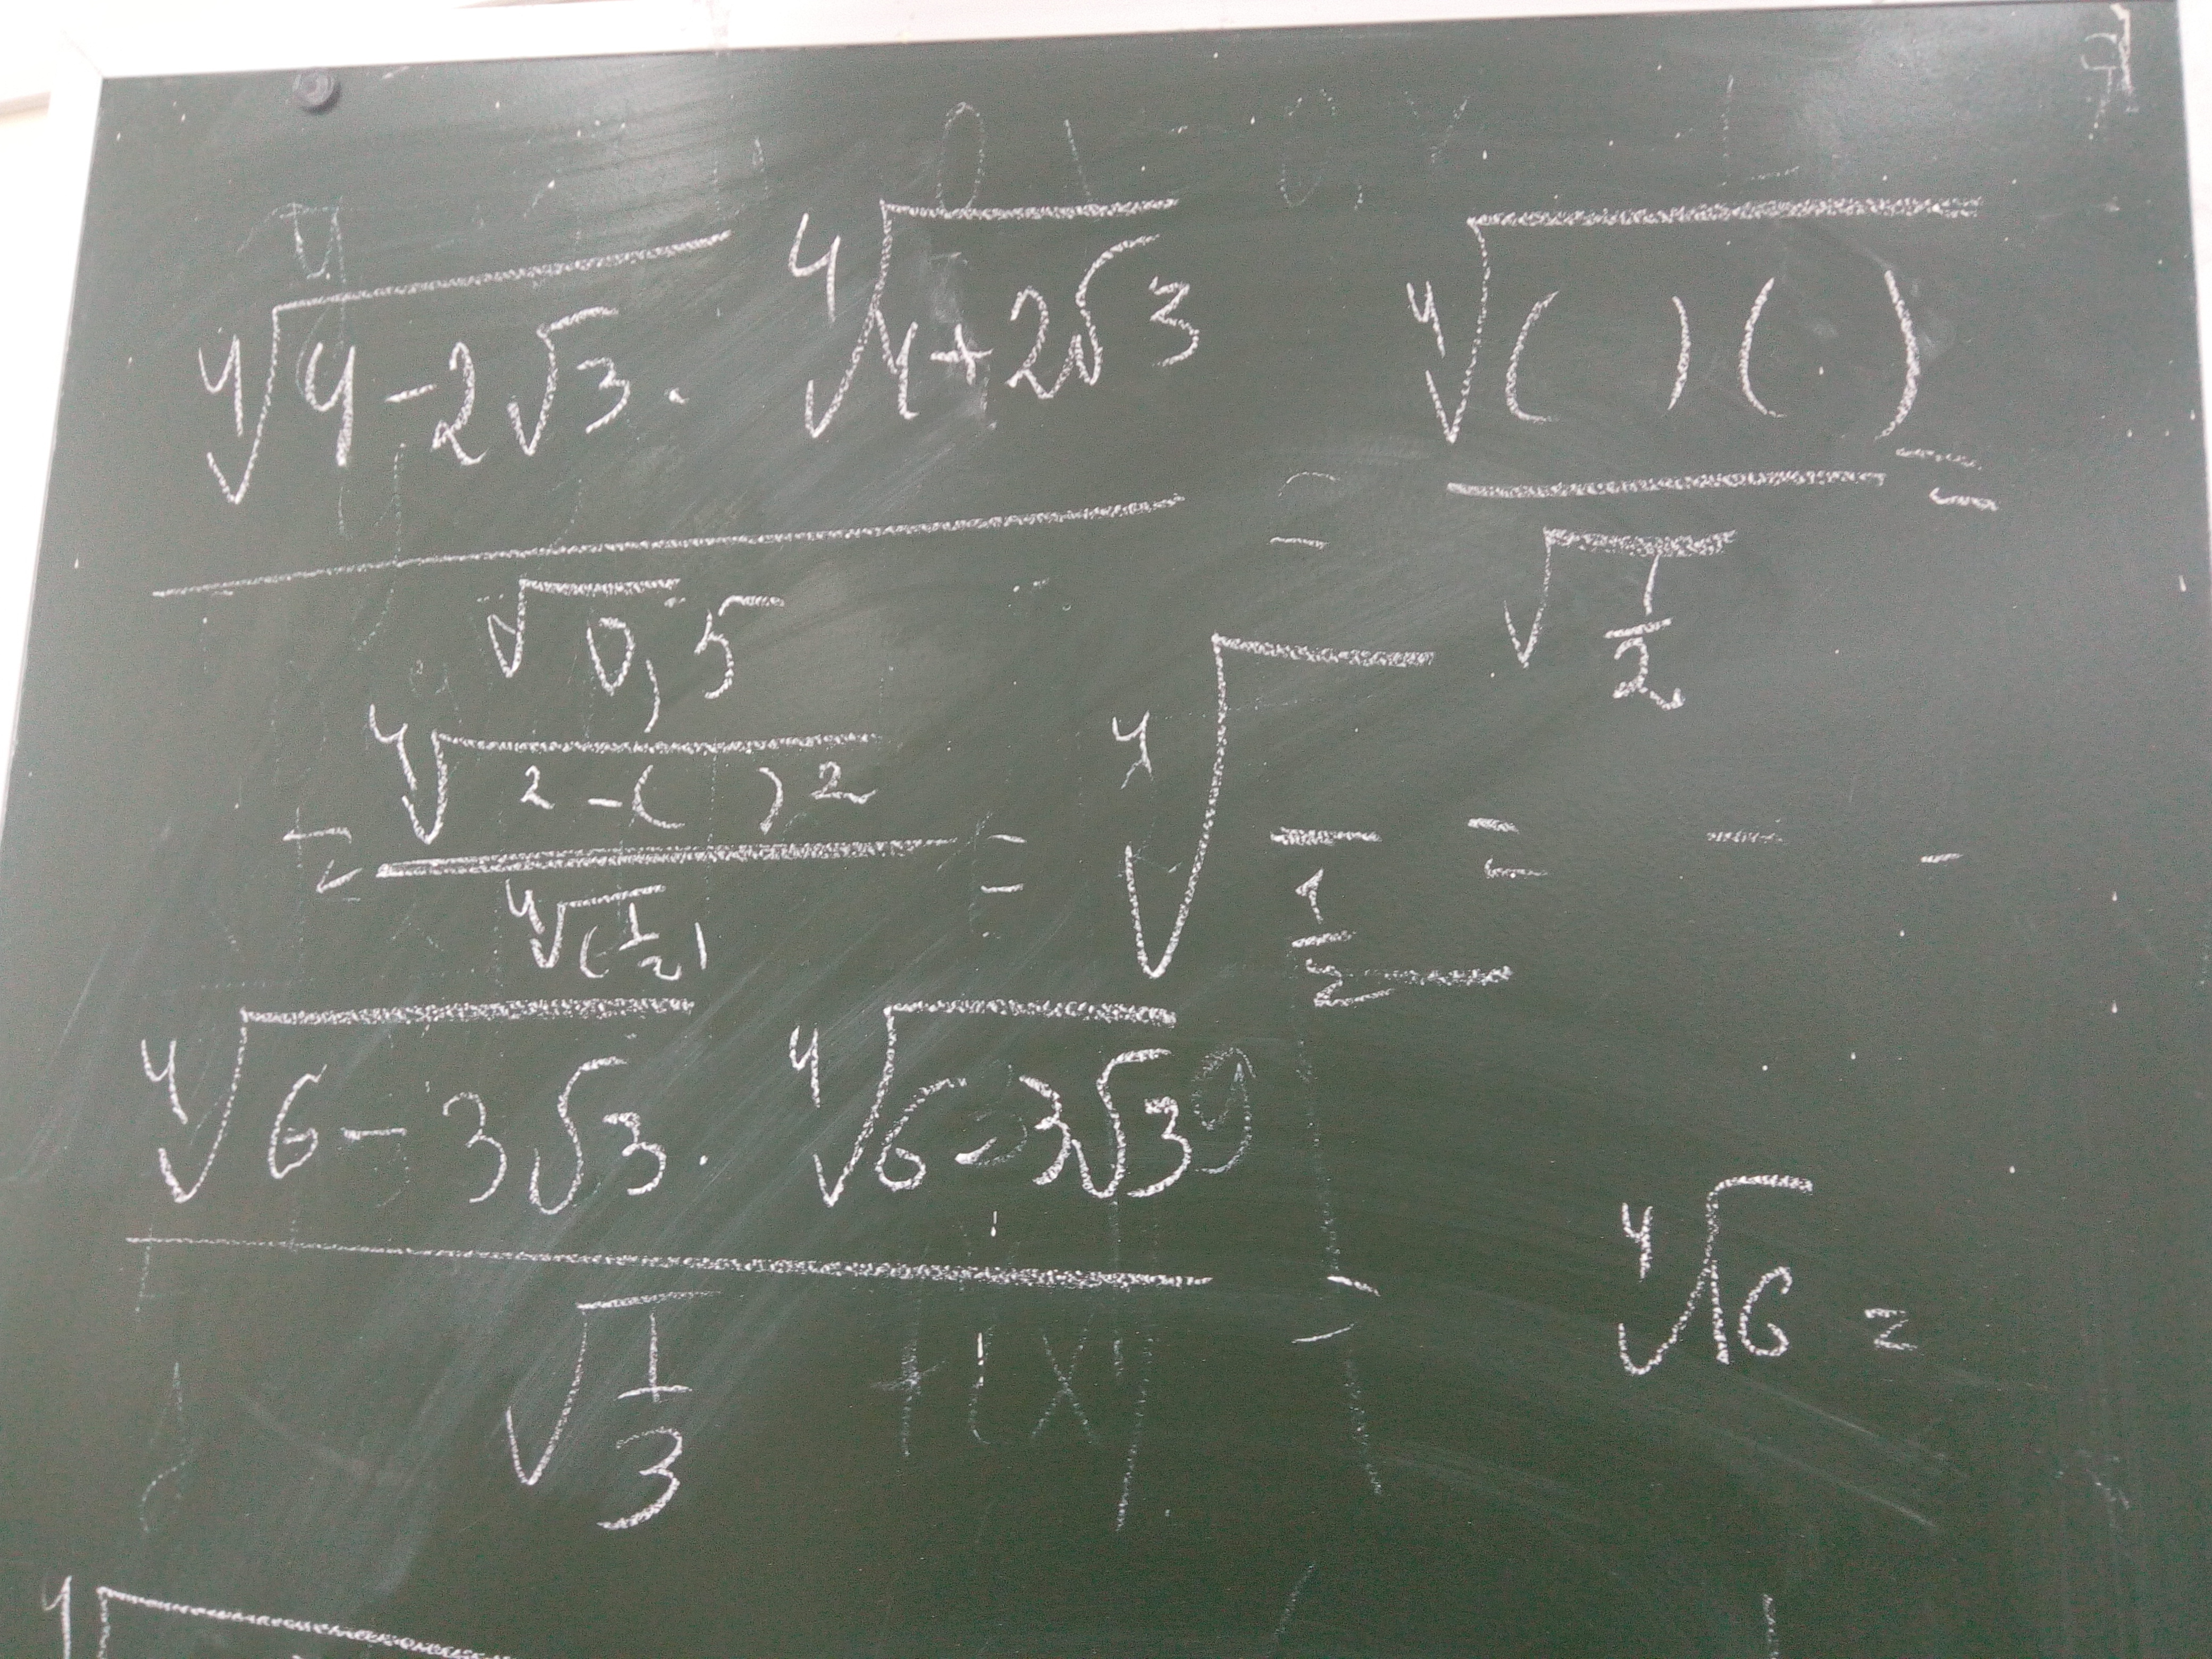 ⁴√(4-2√3) · ⁴√(4+2√3) / √0,5 = ⁴√(( )( )) / √(1/2) =
= ⁴√( ² - ( )²) / ⁴√(1/2) = ⁴√( / 1/2) = — -
⁴√(6-3√3) · ⁴√(6-3√3) / √(1/3) =
⁴√16 =